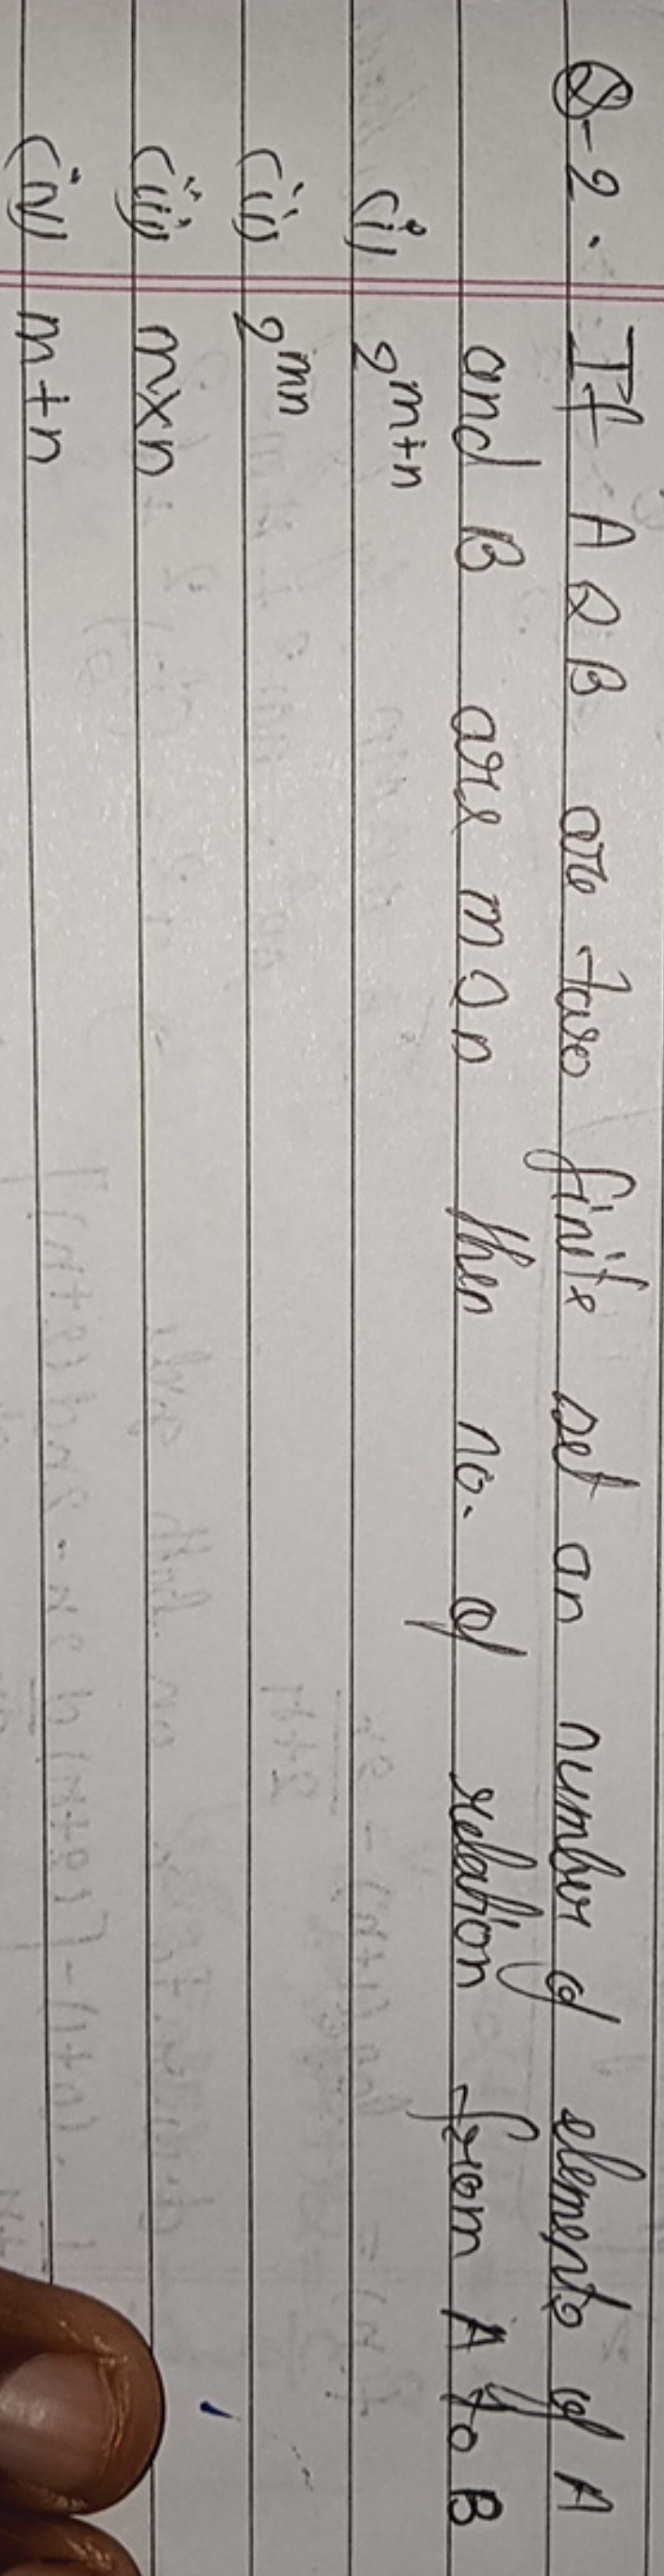 Q-2. If A & B are two finite set an number of elements of A
and B are m & n then no. of relation from A to B
(i) 2^{m+n}
(ii) 2^{mn}
(iii) m×n
(iv) m+n